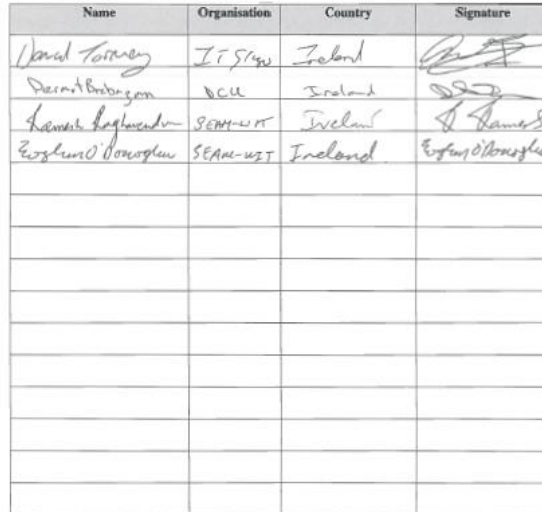 Name Organisation Country Signature
David Tormey IT Sligo Ireland
Dermot Brabazon DCU Ireland
Ramesh Raghavendra SEAM-WIT Ireland R Ramesh
Eoghan O'Donoghue SEAM-WIT Ireland Eoghan O'Donoghue